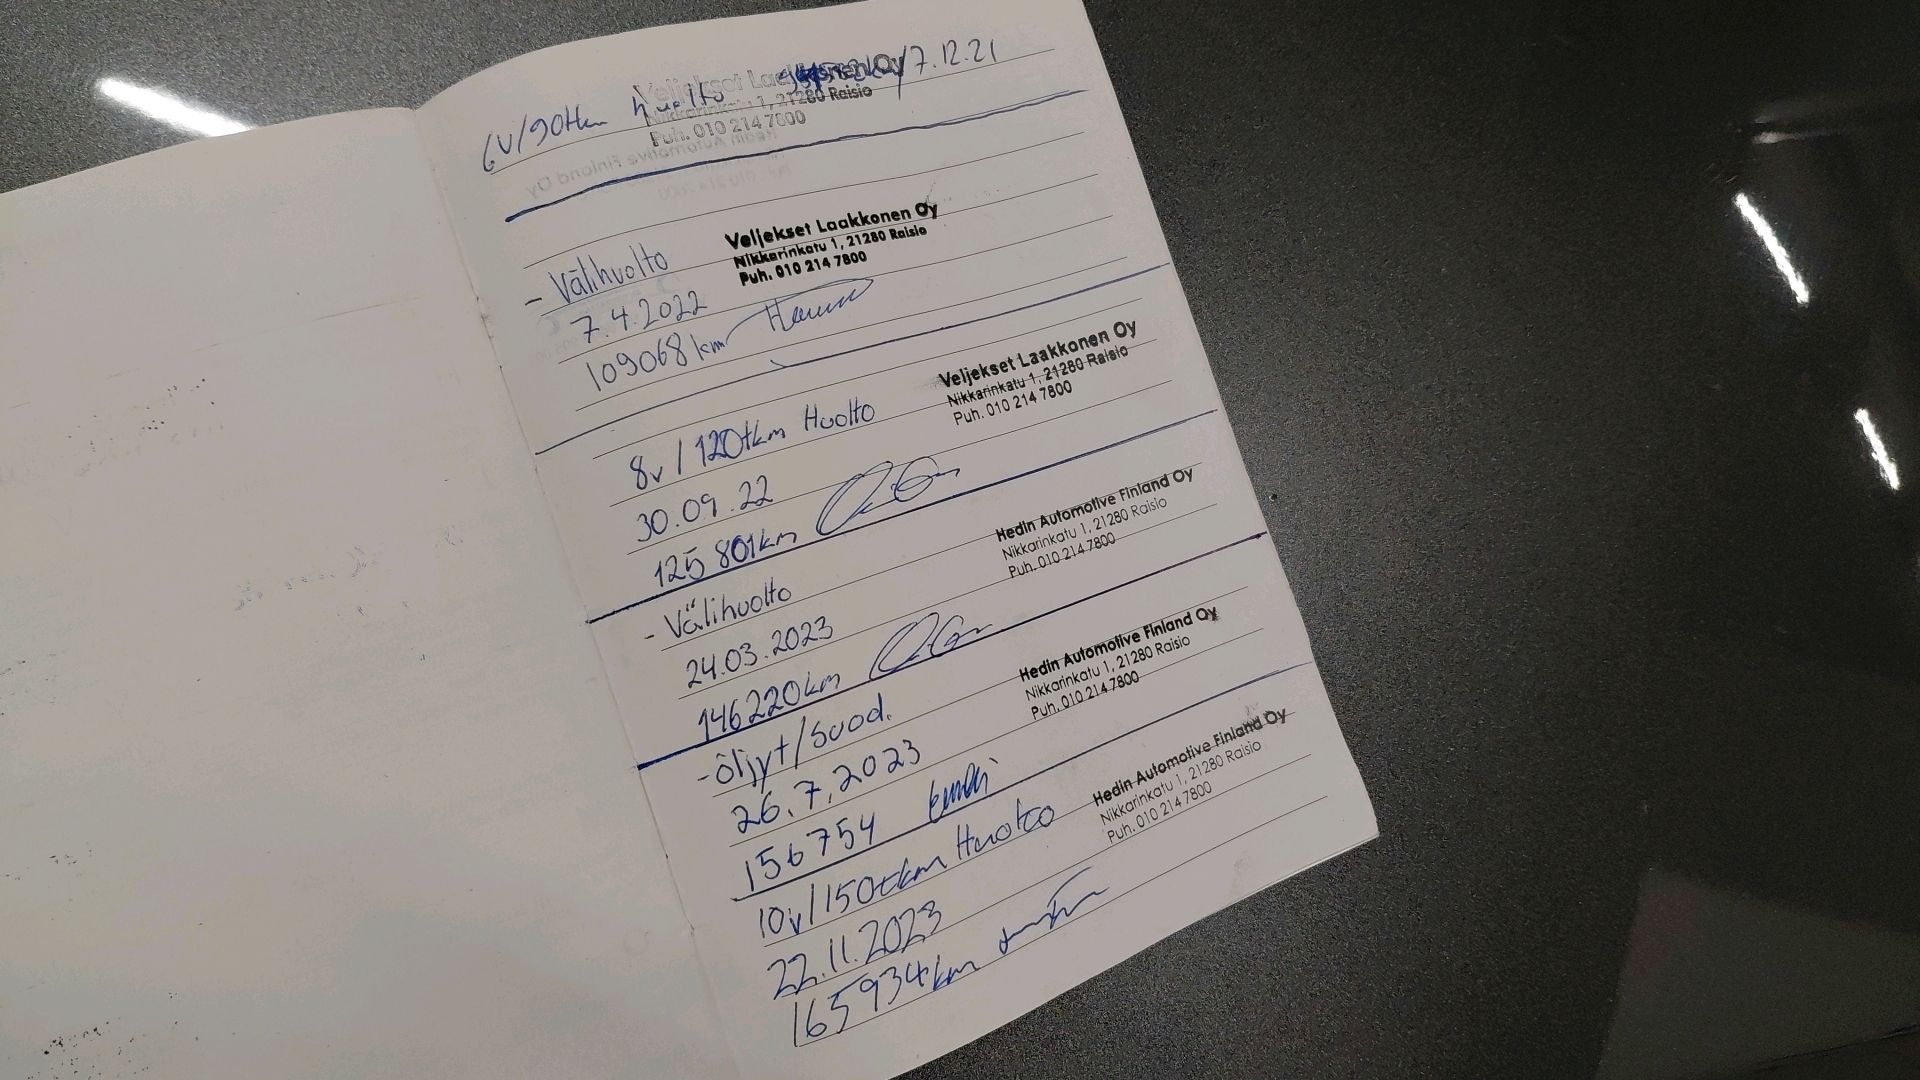 6v/90tkm huolto
7.12.21
Veljekset Laakkonen Oy
Nikkarinkatu 1, 21280 Raisio
Puh. 010 214 7800
Veljekset Laakkonen Oy
Nikkarinkatu 1, 21280 Raisio
Puh. 010 214 7800
- Välihuolto
7.4.2022
109068 km
Veljekset Laakkonen Oy
Nikkarinkatu 1, 21280 Raisio
Puh. 010 214 7800
8v / 120tkm Huolto
30.09.22
125 801km
Hedin Automotive Finland Oy
Nikkarinkatu 1, 21280 Raisio
Puh. 010 214 7800
- Välihuolto
24.03.2023
146220km
Hedin Automotive Finland Oy
Nikkarinkatu 1, 21280 Raisio
Puh. 010 214 7800
- öljyt/suod.
26.7.2023
156754
Hedin Automotive Finland Oy
Nikkarinkatu 1, 21280 Raisio
Puh. 010 214 7800
10v/150tkm Huolto
22.11.2023
165934km